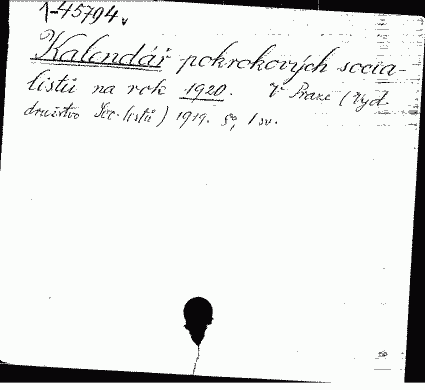 1-45794
Kalendář pokrokových socia-
listů na rok 1920. V Praze (Vyd.
družstvo Soc. listů) 1919. 8°, 1 sv.